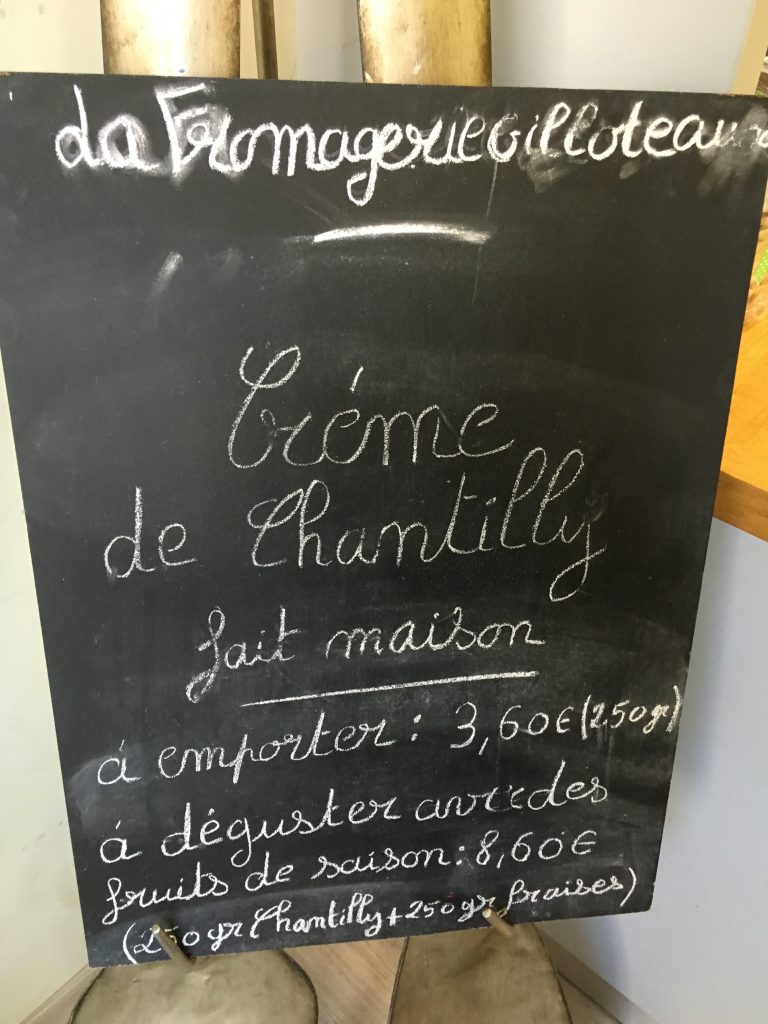 La Fromagerie Gilloteaux
Créme
de Chantilly
fait maison
á emporter : 3,60€ (250 gr)
á déguster avec des
fruits de saison : 8,60€
(250 gr Chantilly + 250 gr fraises)